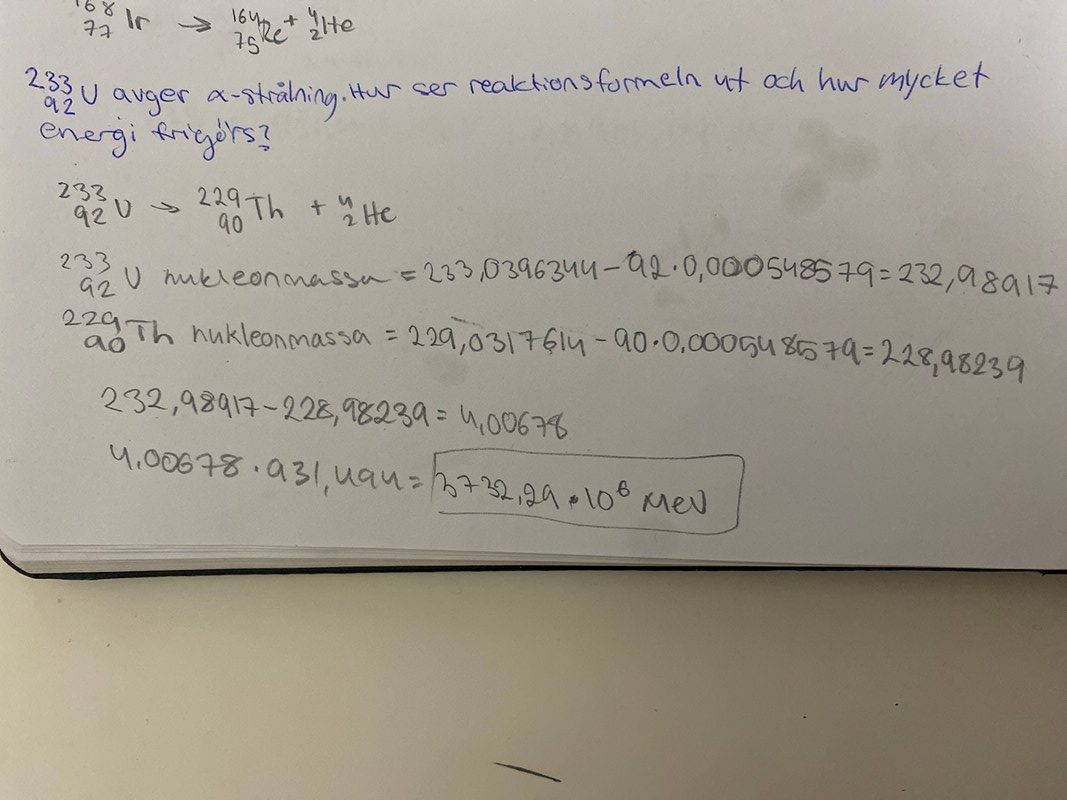 168 77 Ir → 164 75 Re + 4 2 He
233 92 U avger α-strålning. Hur ser reaktionsformeln ut och hur mycket
energi frigörs?
233 92 U → 229 90 Th + 4 2 He
233 92 U nukleonmassa = 233,0396344 - 92·0,000548579 = 232,98917
229 90 Th nukleonmassa = 229,0317614 - 90·0,000548579 = 228,98239
232,98917 - 228,98239 = 4,00678
4,00678 · 931,494 = 3732,29 · 10⁶ MeV